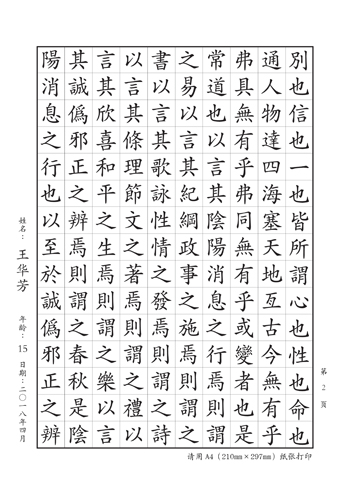 別也信也一也皆所謂心也性也命也
通人物達四海塞天地亙古今無有乎
弗具無有乎弗同無有乎或變者也是
常道也以言其陰陽消息之行焉則謂
之易以言其紀綱政事之施焉則謂之
書以言其歌詠性情之發焉則謂之詩
以言其條理節文之著焉則謂之禮以
言其欣喜和平之生焉則謂之樂以言
其誠僞邪正之辨焉則謂之春秋是陰
陽消息之行也以至於誠僞邪正之辨
姓名：王华芳 年龄：15 日期：二〇一八年四月
第 2 页
请用A4（210mm×297mm）纸张打印